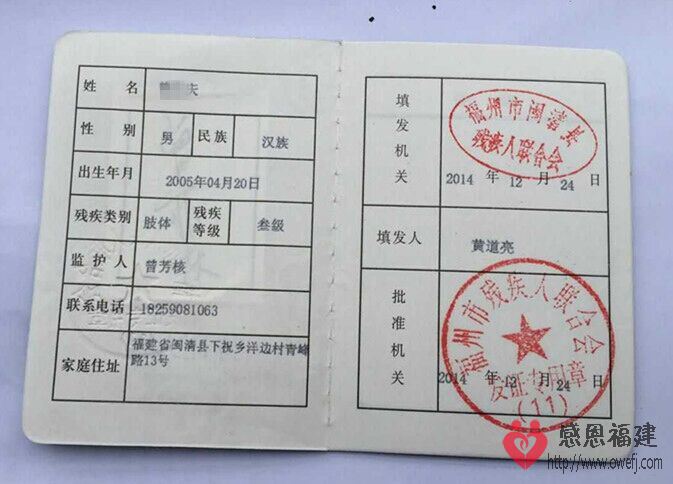 姓 名 曾 庆
性 别 男 民族 汉族
出生年月 2005年04月20日
残疾类别 肢体 残疾等级 叁级
监 护 人 曾芳棱
联系电话 18259081063
家庭住址 福建省闽清县下祝乡洋边村青峰
路13号
填发机关
福州市闽清县
残疾人联合会
2014 年 12 月 24 日
填发人 黄道亮
批准机关
福州市残疾人联合会
发证专用章
(11)
2014 年 12 月 24 日
感恩福建
http://www.owefj.com